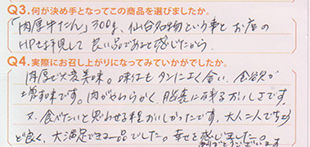 Q3.何が決め手となってこの商品を選びましたか。
「肉厚牛たん」300g、仙台名物という事とお店の
HPを拝見して良い品であると感じたから
Q4.実際にお召し上がりになってみていかがでしたか。
肉厚で大変美味。味付もタンによく合い、食欲が
増す味です。肉がやわらかく、脂身に勝るおいしさです
又、食べたいと思わせる程おいしかったです。大人二人でちょう
ど良く、大満足できる一品でした。幸せを感じました。
ありがとうございます